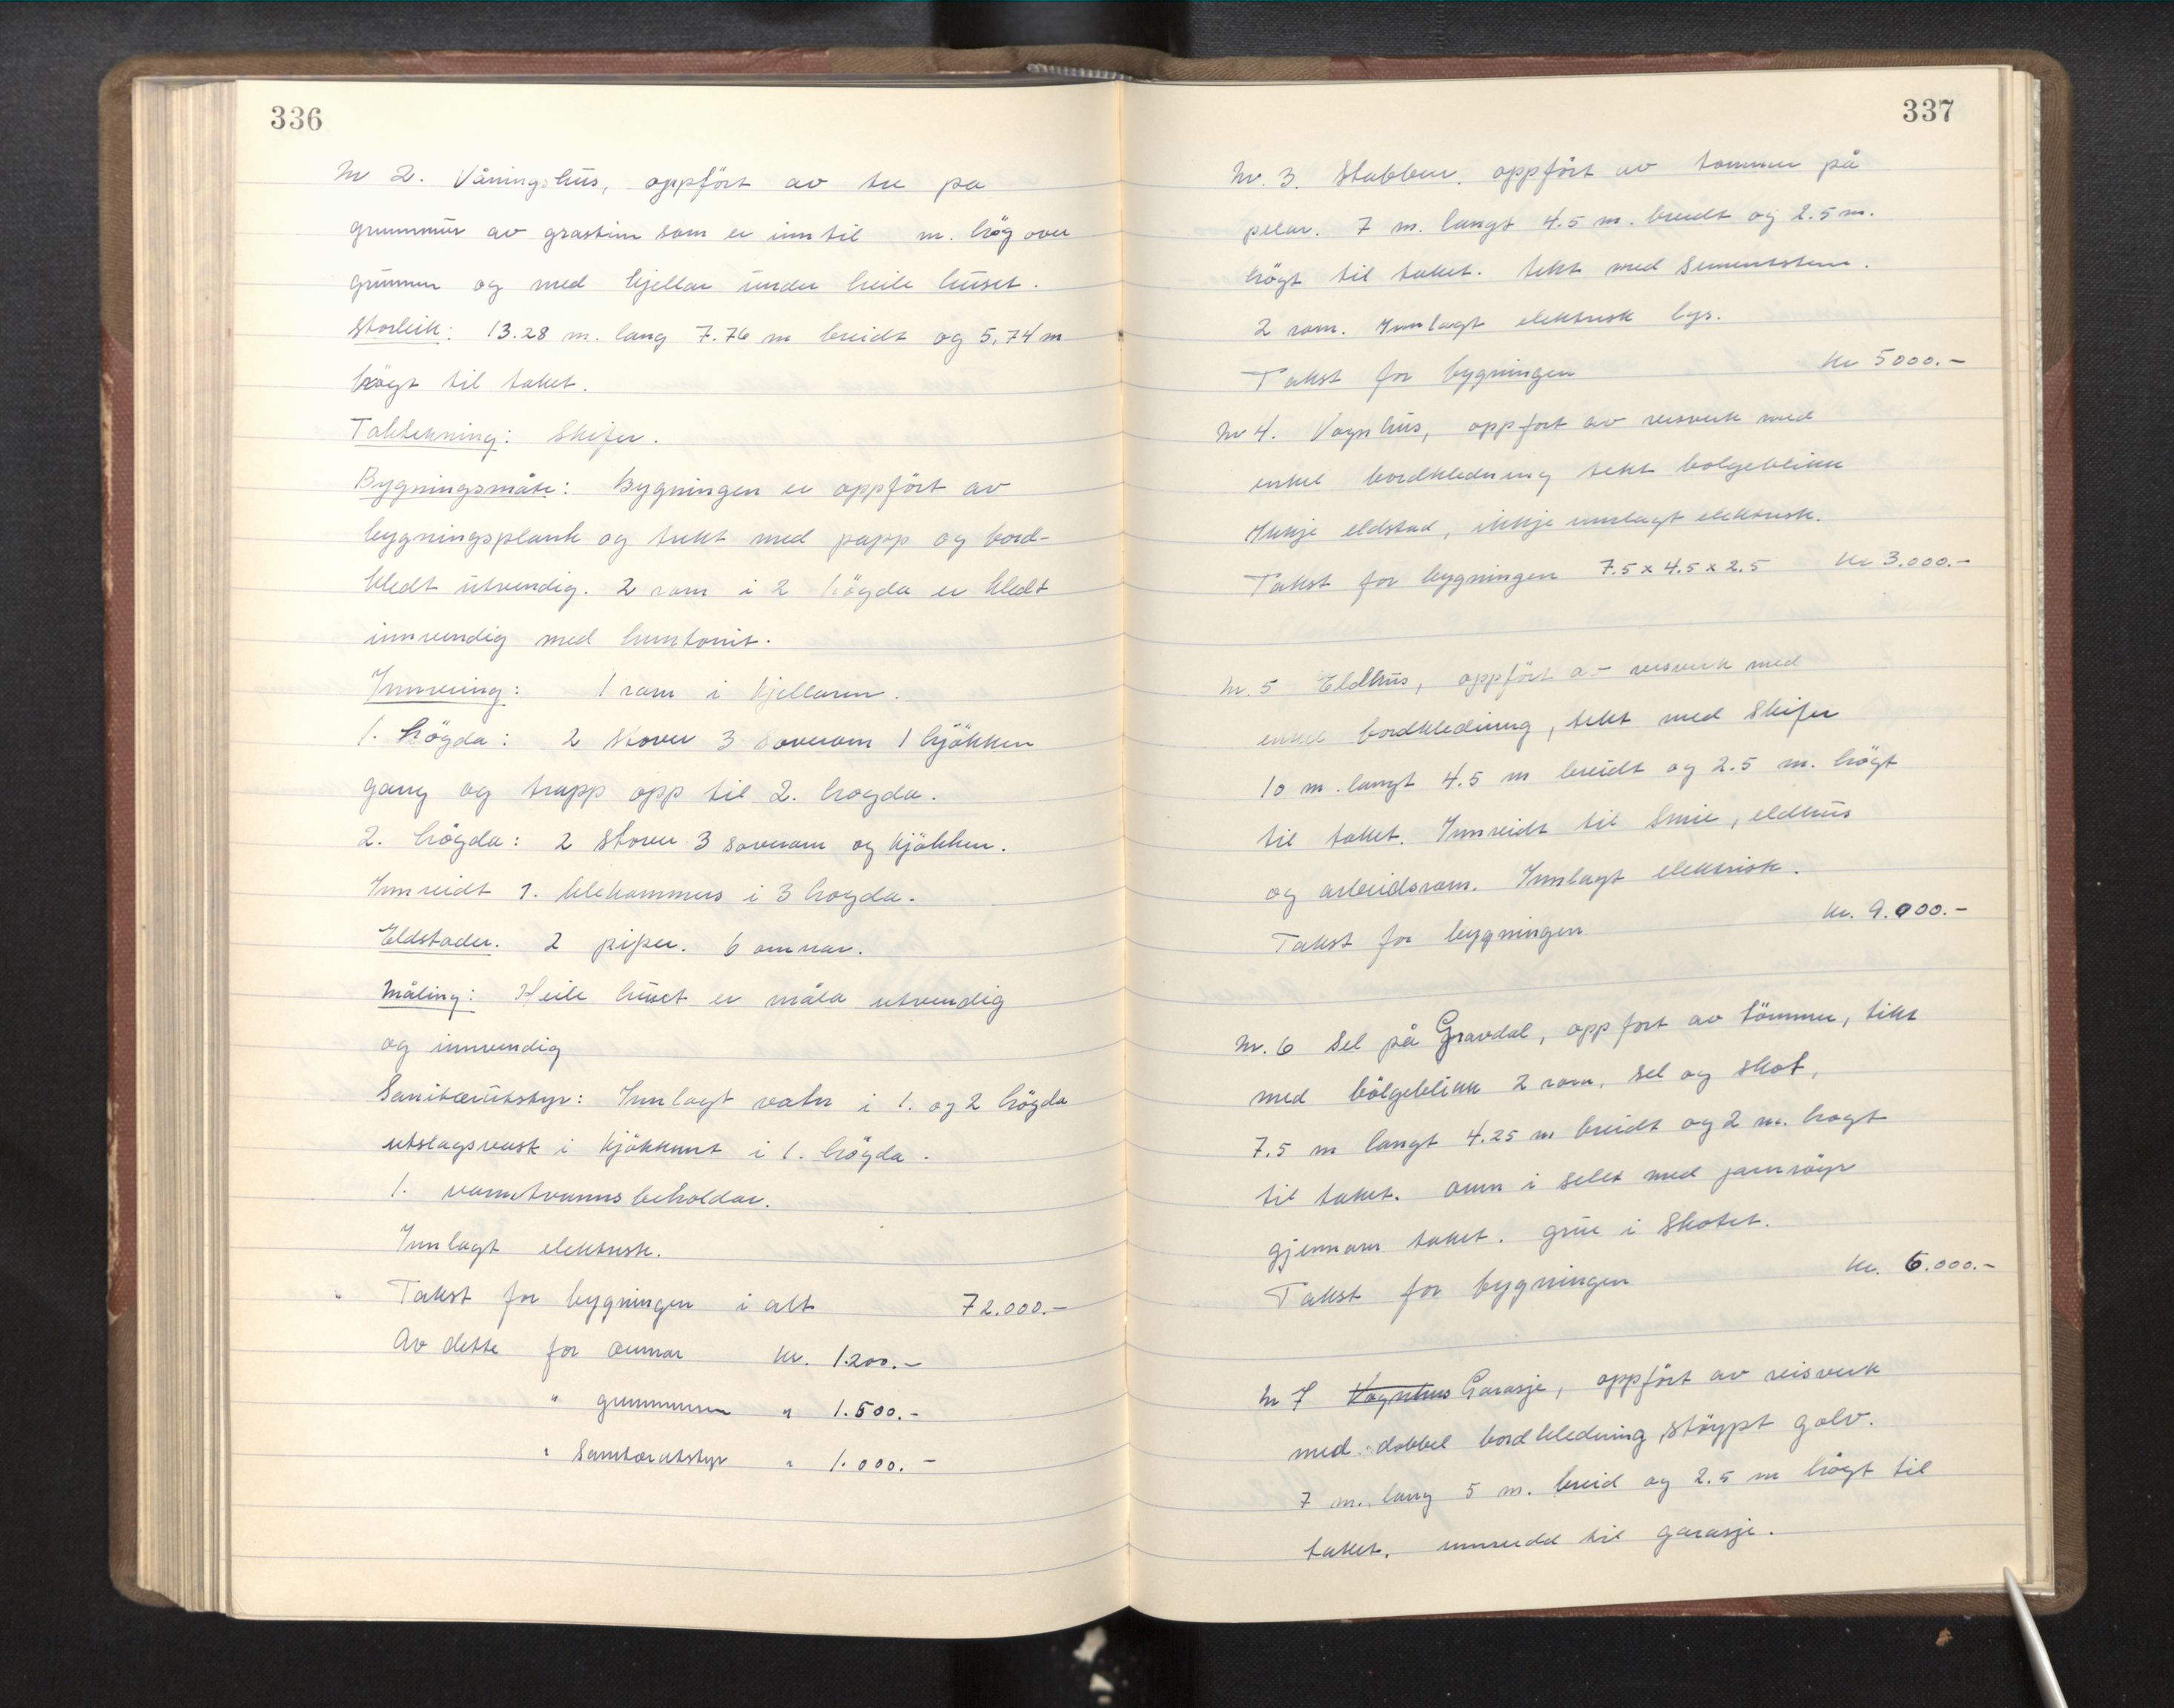 336
Nr 2. Våningshus, oppført av tre pa
grunnmur av grastein som er inntil m. høg over
grunnen og med kjellar under heile huset.
Storleik: 13.28 m. lang 7.76 m breidt og 5,74 m
høgt til taket.
Taktekning: Skifer.
Bygningsmåte: Bygningen er oppført av
bygningsplank og trekt med papp og bord-
kledt utvendig. 2 rom i 2 høgda er kledt
innvendig med huntonit.
Innreiing: 1 rom i kjellaren.
1. høgda: 2 stover 3 soverom 1 kjøkken
gang og trapp opp til 2. høgda.
2. høgda: 2 stover 3 soverom og kjøkken.
Innreidt 1. klekammers i 3 hogda.
Eldstader. 2 piper. 6 omnar.
Måling: Heile huset er måla utvendig
og innvendig
Sanitærutstyr: Innlagt vatn i 1. og 2 høgda
utslagsvask i kjøkkenet i 1. høgda.
1. varmtvannsbeholdar.
Innlagt elektrisk.
" Takst for bygningen i alt 72.000.-
Av dette for omnar kr. 1.200.-
" grunnmuren " 1.500.-
" Sanitærutstyr " 1.000.-
337
Nr. 3. Stabbur. oppført av tømmer på
pelar. 7 m. langt 4.5 m. breidt og 2.5 m.
høgt til taket. tekt med Sementstein.
2 rom. Innlagt elektrisk lys.
Takst for bygningen kr 5000.-
Nr 4. Vognhus, oppfort av reisverk med
enkel bordkledning tekt bølgeblikk
Ikkje eldstad, ikkje innlagt elektrisk.
Takst for bygningen 7.5 x 4.5 x 2.5 kr 3.000.-
Nr. 5 Eldhus, oppført av reisverk med
enkel bordkledning, tekt med Skifer
10 m. langt 4.5 m breidt og 2.5 m. høgt
til taket. Innreidt til Smie, eldhus
og arbeidsrom. Innlagt elektrisk.
Takst for bygningen kr. 9.000.-
Nr. 6 Sel på Gravdal, oppfort av tømmer, tekt
med bølgeblikk 2 rom, sel og skot,
7.5 m langt 4.25 m breidt og 2 m. høgt
til taket. omn i selet med jarnrøyr
gjennom taket. grue i Skotet.
Takst for bygningen kr. 6.000.-
Nr 7 Vognhus Garasje, oppført av reisverk
med dobbel bordkledning, støypt golv.
7 m. lang 5 m. breid og 2.5 m høgt til
taket. innreidd til garasje.